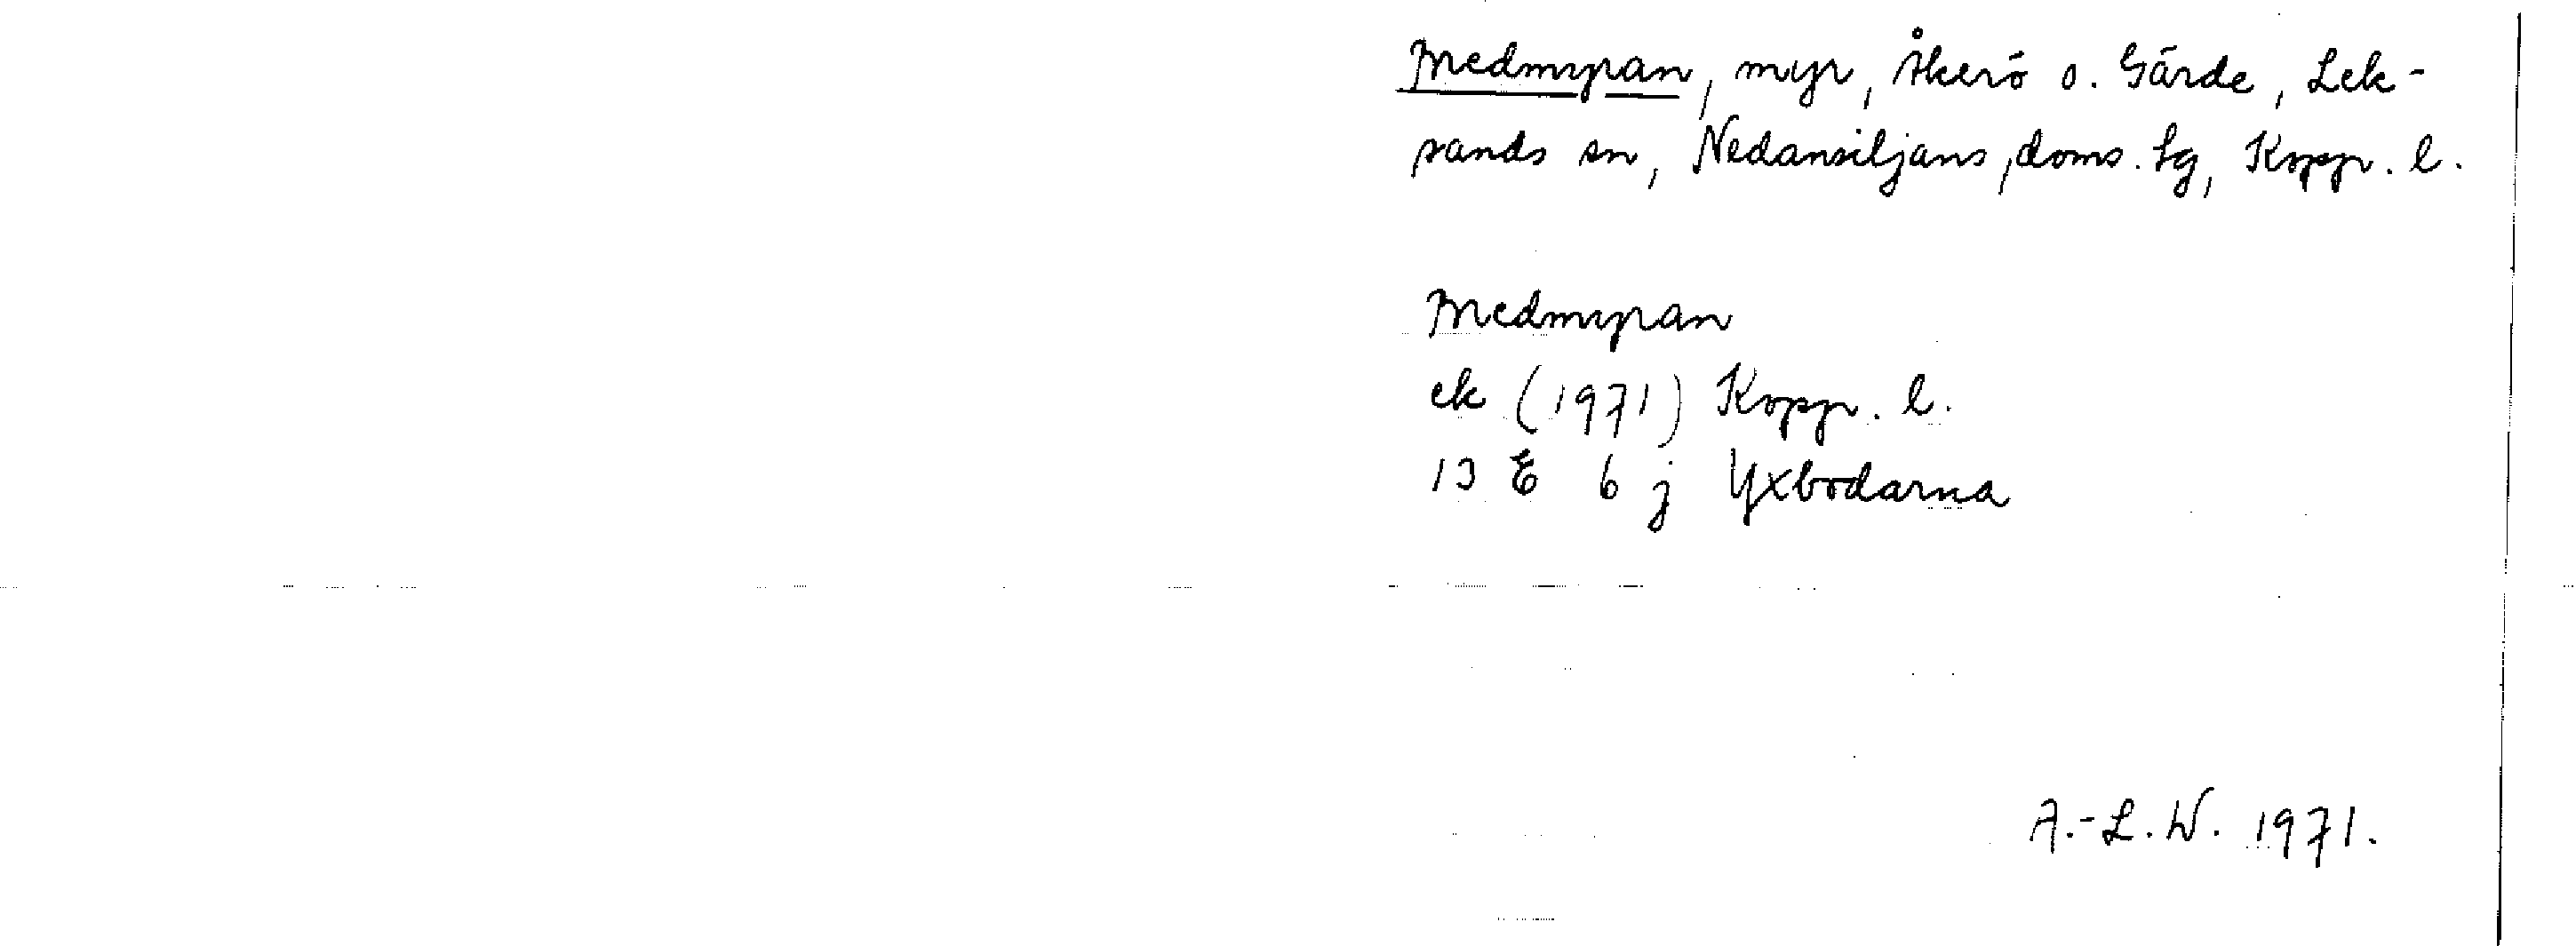 Medmyran, myr, Åkerö o. Gärde, Lek-
sands sn, Nedansiljans doms. lg, Kopp. l.
Medmyran
ek (1971) Kopp. l.
13 E 6 j Yxbodarna
A.-L.W. 1971.